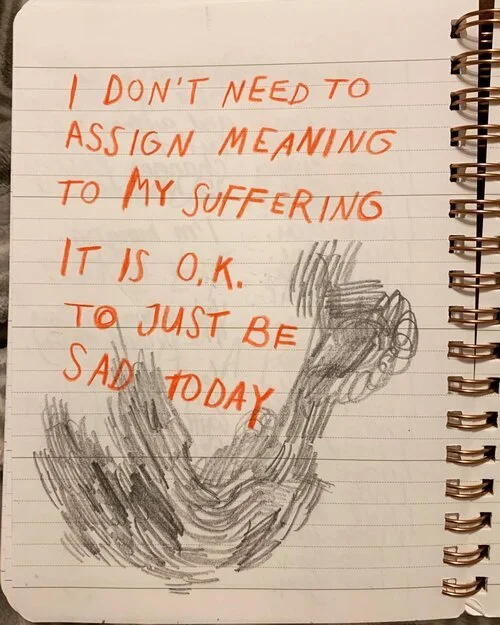 I DON'T NEED TO
ASSIGN MEANING
TO MY SUFFERING
IT IS O.K.
TO JUST BE
SAD TODAY